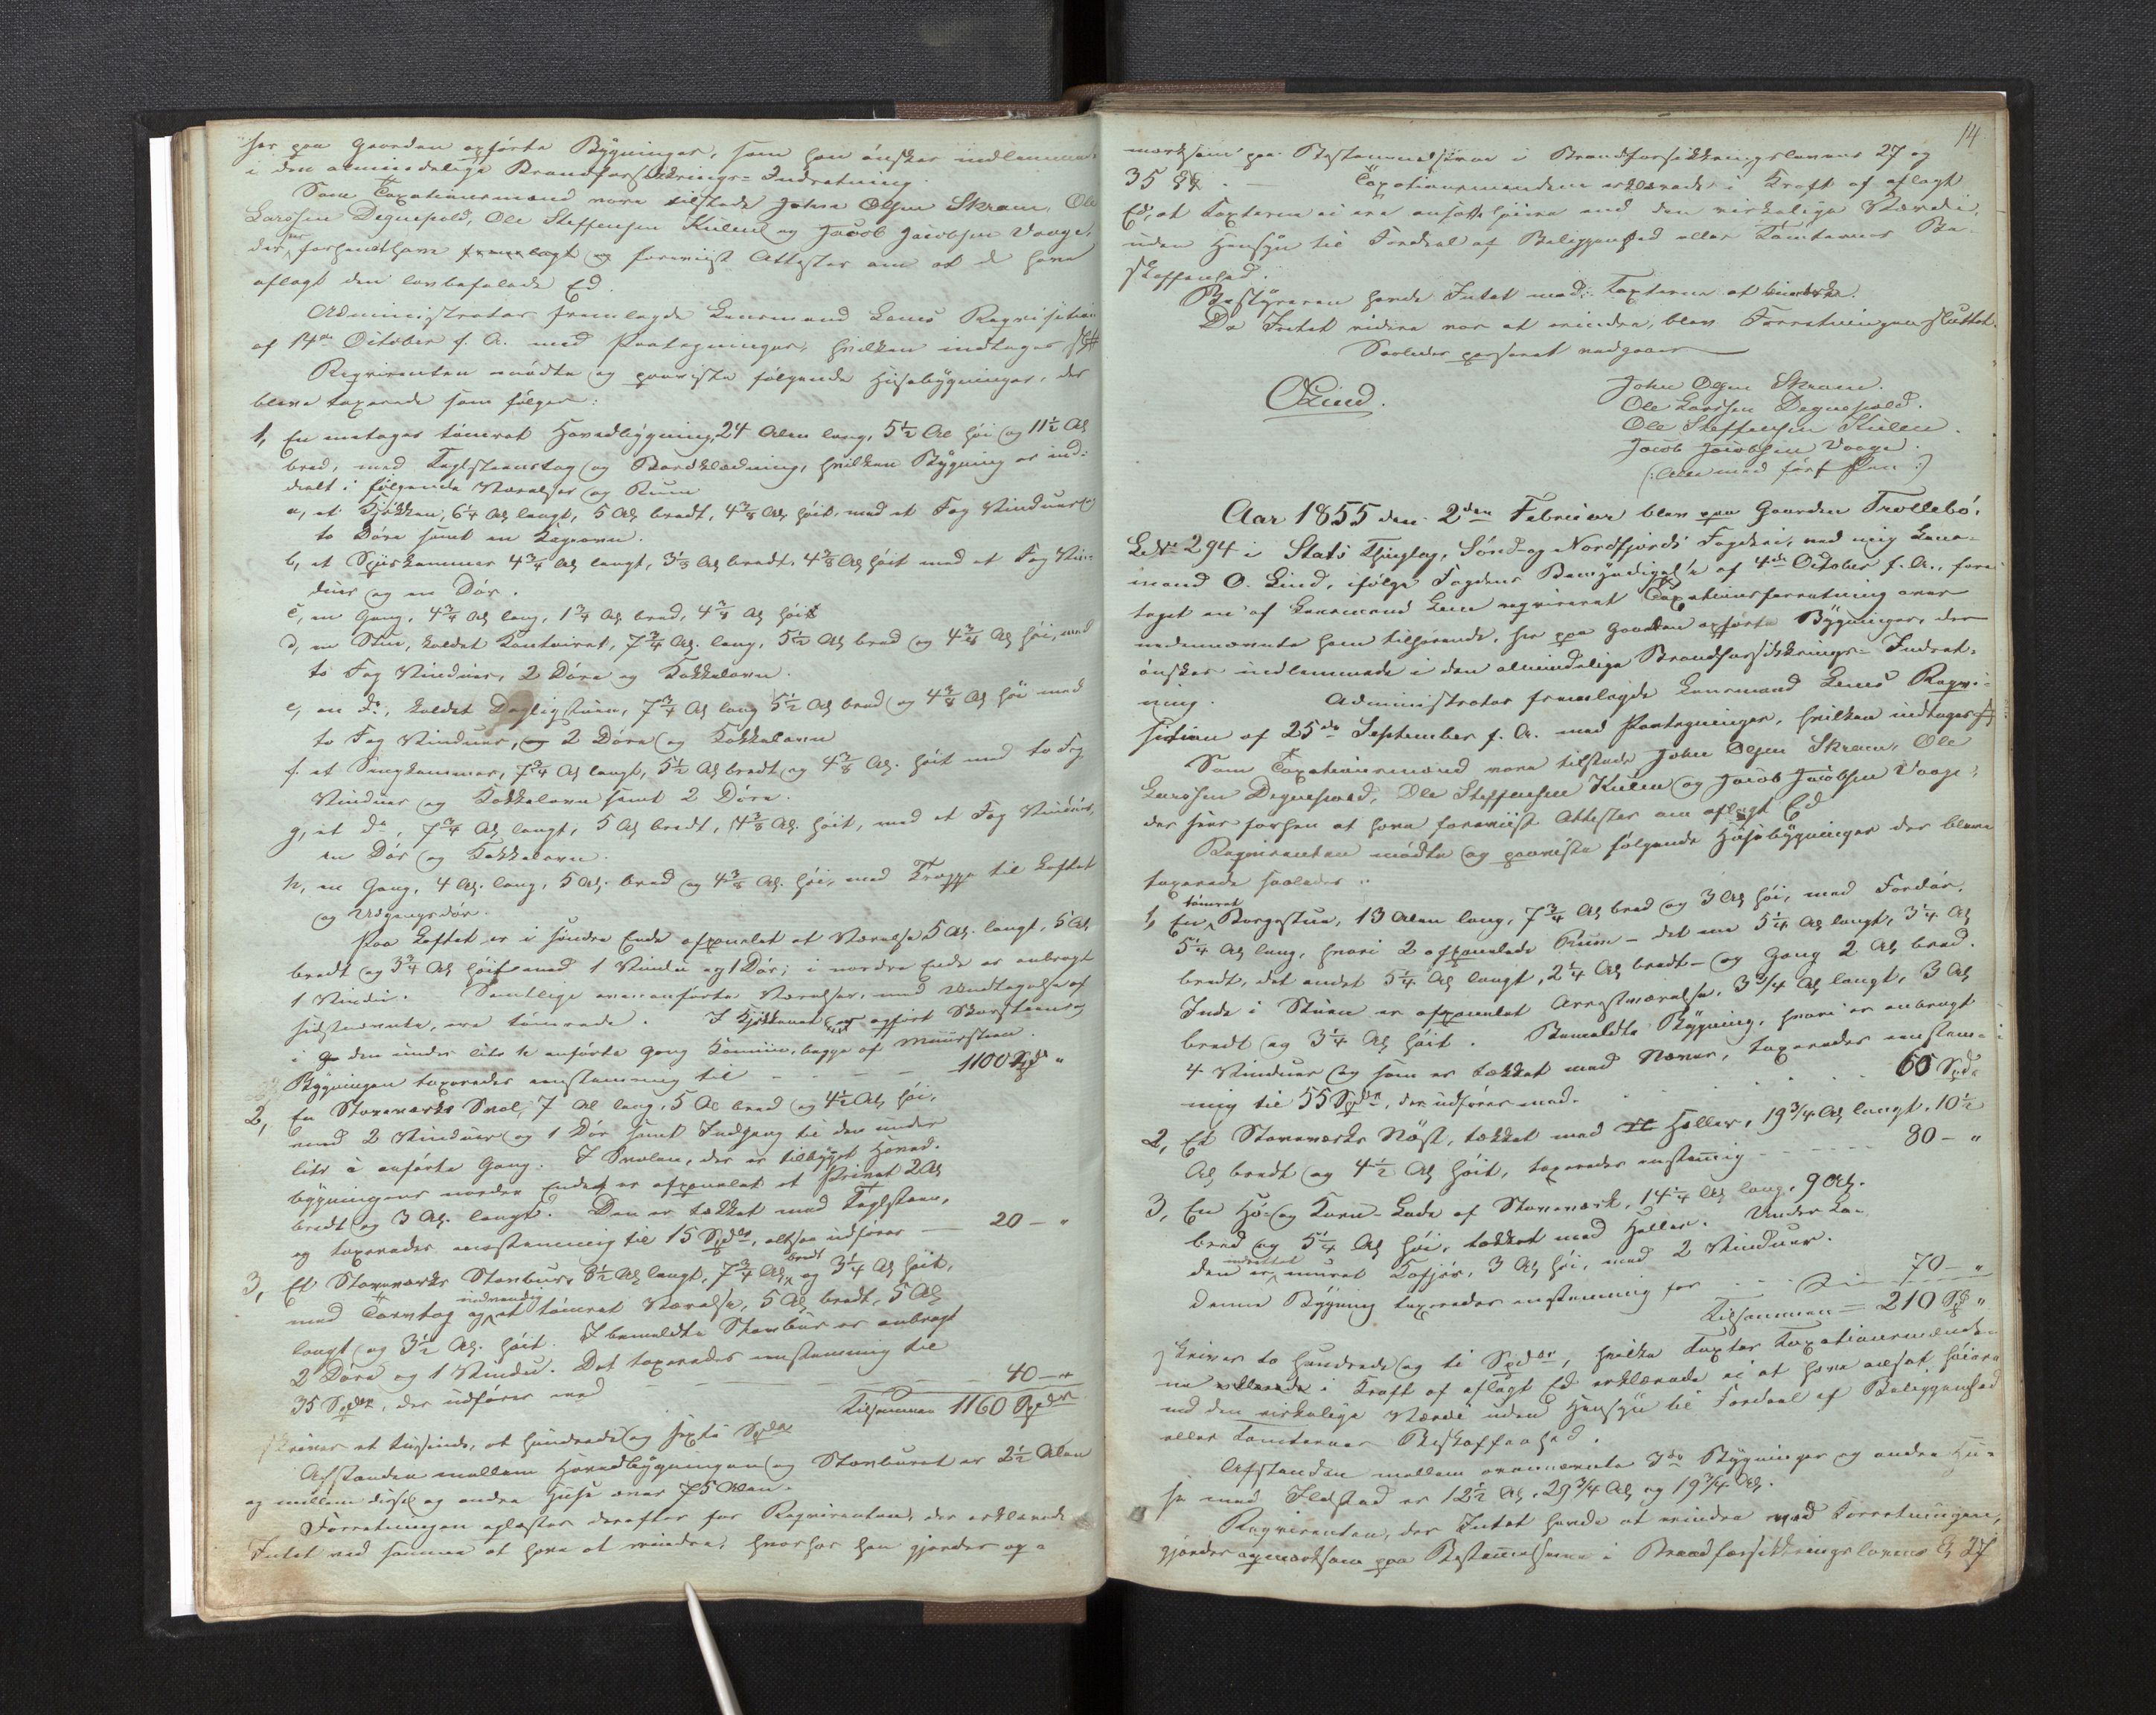 her paa Gaarden opførte Bygninger, som han ønsker indlemmede
i den almindelige Brandforsikkrings-Indretning.
Som Taxationsmænd vare tilstede John Olsen Skram, Ole
Larssen Degnepold, Ole Steffensen Kulen og Jacob Jacobsen Vaage,
der før forhen at have fremlagt og foreviist Attester om at de have
aflagt den lovbefalede Ed.
Administrator fremlagde Lensmand Lems Reqvisition
af 14de October f. A. med Paategninger, hvilken indtages
Reqvirenten mødte og paaviste følgende Huusbygninger, der
bleve taxerede som følger:
1, En enetages tømret Hovedbygning, 24 Alen lang, 5½ Al høi og 11½ Al
bred, med Taglsteenstag og Bordklædning, hvilken Bygning er ind-
deelt i følgende Værelser og Rum
a, et Kjøkken, 6¼ Al langt, 5 Al bredt, 4⅜ Al høit, med et Fag Vinduer
to Døre samt en Bagerovn.
b, et Spiiskammer 4¾ Al langt, 3⅛ Al bredt, 4⅜ Al høit med et Fag Vin-
duer og en Dør.
c, en Gang, 4¾ Al lang, 1¾ Al bred, 4⅜ Al høi
d, en Stue, kaldet Kontoiret, 7¾ Al. lang, 5½ Al bred og 4⅜ Al høi, med
to Fag Vinduer, 2 Døre og Kakkelovn.
e, en do, kaldet Dagligstuen, 7¾ Al lang 5½ Al bred og 4⅜ Al høi med
to Fag Vinduer, 2 Døre og Kakkelovn
f. et Sengkammer, 7¾ Al langt, 5½ Al bredt og 4⅜ Al. høit med to Fag
Vinduer og Kakkelovn samt 2 Døre.
g, et do, 7¾ Al langt, 5 Al bredt, 4⅜ Al. høit, med et Fag Vinduer,
en Dør og Kakkelovn.
h, en Gang, 4 Al. lang, 5 Al. bred og 4⅜ Al. høi, med Trappe til Loftet
og Udgangsdør.
Paa Loftet er i søndre Ende afpanelet et Værelse 5 Al. langt, 5 Al
bredt og 3¾ Al høit med 1 Vindu og 1 Dør; i nordre Ende er anbragt
1 Vindu. Samtlige ovenanførte Værelser, med Undtagelse af
sidstnævnte, ere tømrede. I Kjøkkenet er opført Skorsteen og
i den under litr h anførte Gang Kamin, begge af Muursteen.
Bygningen taxeredes eenstemmig til - - - 1100 Spd "
2, En Stavværks Sval, 7 Al lang, 5 Al bred og 4½ Al høi,
med 2 Vinduer og 1 Dør samt Indgang til den under
litr c anførte Gang. I Svalen, der er tilbygget Hoved-
bygningens nordre Ende er afpanelet et Privat 2 Al
bredt og 3 Al. langt. Den er tækket med Taglsteen,
og taxeredes eenstemmig til 15 Spdlr, altsaa udføres — 20 – "
3, Et Stavværks Stavbur, 8½ Al langt, 7¾ Al bredt og 3¼ Al høit,
med Torvtag og indvendig et tømret Værelse, 5 Al bredt, 5 Al
langt og 3½ Al. høit. I bemeldte Stavbur er anbragt
2 Døre og 1 Vindu. Det taxeredes eenstemmig til
35 Spdlr, der udføres med - - - 40 – "
Tilsammen 1160 Spdlr
skriver et tusinde, et hundrede og sexti Spdlr
Afstanden mellem Hovedbygningen og Stavburet er 2½ Alen
og mellem disse og andre Huse over 75 Alen.
Forretningen oplæstes derefter for Reqvirenten, der erklærede
Intet ved samme at have at erindre, hvorhos han gjordes op-
14
mærksom paa Bestemmelserne i Brandforsikkringslovens 27 og
35 §§. — Taxationsmændene erklærede i Kraft af aflagt
Ed, at Taxterne ei ere ansatte høiere end den virkelige Værdie,
uden Hensyn til Fordeel af Beliggenhed eller Tomternes Be-
skaffenhed.
Bestyreren havde Intet mod Taxterne at bemærke.
Da Intet videre var at erindre, blev Forretningen sluttet.
Saaledes passeret vedgaaer
OLind.
John Olsen Skram.
Ole Larssen Degnepold.
Ole Steffensen Kulen.
Jacob Jacobsen Vaage.
(: Alle med ført Pen :)
Aar 1855 den 2den Februar blev paa Gaarden Trollebø,
LNr 294 i Stats Thinglag, Sønd- og Nordfjords Fogderi, ved mig Lens-
mand O. Lind, ifølge Fogdens Bemyndigelse af 4de October f. A., fore-
taget en af Lensmand Lem reqvireret Taxationsforretning over
nedennævnte ham tilhørende, her paa Gaarden opførte Bygninger, der
ønskes indlemmede i den almindelige Brandforsikkrings-Indret-
ning. Administrator fremlagde Lensmand Lems Reqvi-
sition af 25de September f. A. med Paategninger, hvilken indtages
Som Taxationsmænd vare tilstede John Olsen Skram, Ole
Larssen Degnepold, Ole Steffensen Kulen og Jacob Jacobsen Vaage,
der have forhen at have foreviist Attester om aflagt Ed
Reqvirenten mødte og paaviste følgende Huusbygninger der bleve
taxerede saaledes:
1, En tømret Borgestue, 13 Alen lang, 7¾ Al bred og 3 Al høi, med Fordør,
5¼ Al lang, hvori 2 afpanelede Rum – det ene 5¼ Al langt, 3¼ Al
bredt, det andet 5¼ Al langt, 2¼ Al bredt – og Gang 2 Al bred.
Inde i Stuen er afpanelet Arrestværelse, 3¾ Al langt, 3 Al
bredt og 3¼ Al høit. Bemeldte Bygning, hvori er anbragt
4 Vinduer og som er tækket med Næver, taxeredes eenstem-
mig til 55 Spdlr, der udføres med. . . . . 60 Spd "
2, Et Stavværks Nøst, tækket med Heller, 19¾ Al langt, 10½
Al bredt og 4½ Al høit, taxeredes enstemig - - - 80 – "
3, En Hø- og Korn-Lade af Stavværk, 14¼ Al lang, 9 Al.
bred og 5¼ Al høi, tækket med Heller. Under La-
den er indrettet muret Fæfjøs, 3 Al høi, med 2 Vinduer.
Denne Bygning taxeredes enstemmig for - - - 70 – "
Tilsammen = 210 Spd "
skriver to hundrede og ti Spdlr, hvilke Taxter Taxationsmænde-
ne i Kraft af aflagt Ed erklærede ei at have ansat høiere
end den virkelige Værdi uden Hensyn til Fordeel af Beliggenhed
eller Tomternes Beskaffenhed.
Afstanden mellem ovennævnte 3de Bygninger og andre Hu-
se med Ildsted er 12½ Al, 29¾ Al og 19¾ Al.
Reqvirenten, der Intet havde at erindre ved Forretningen,
gjordes opmærksom paa Bestemmelserne i Brandforsikkringslovens § 27